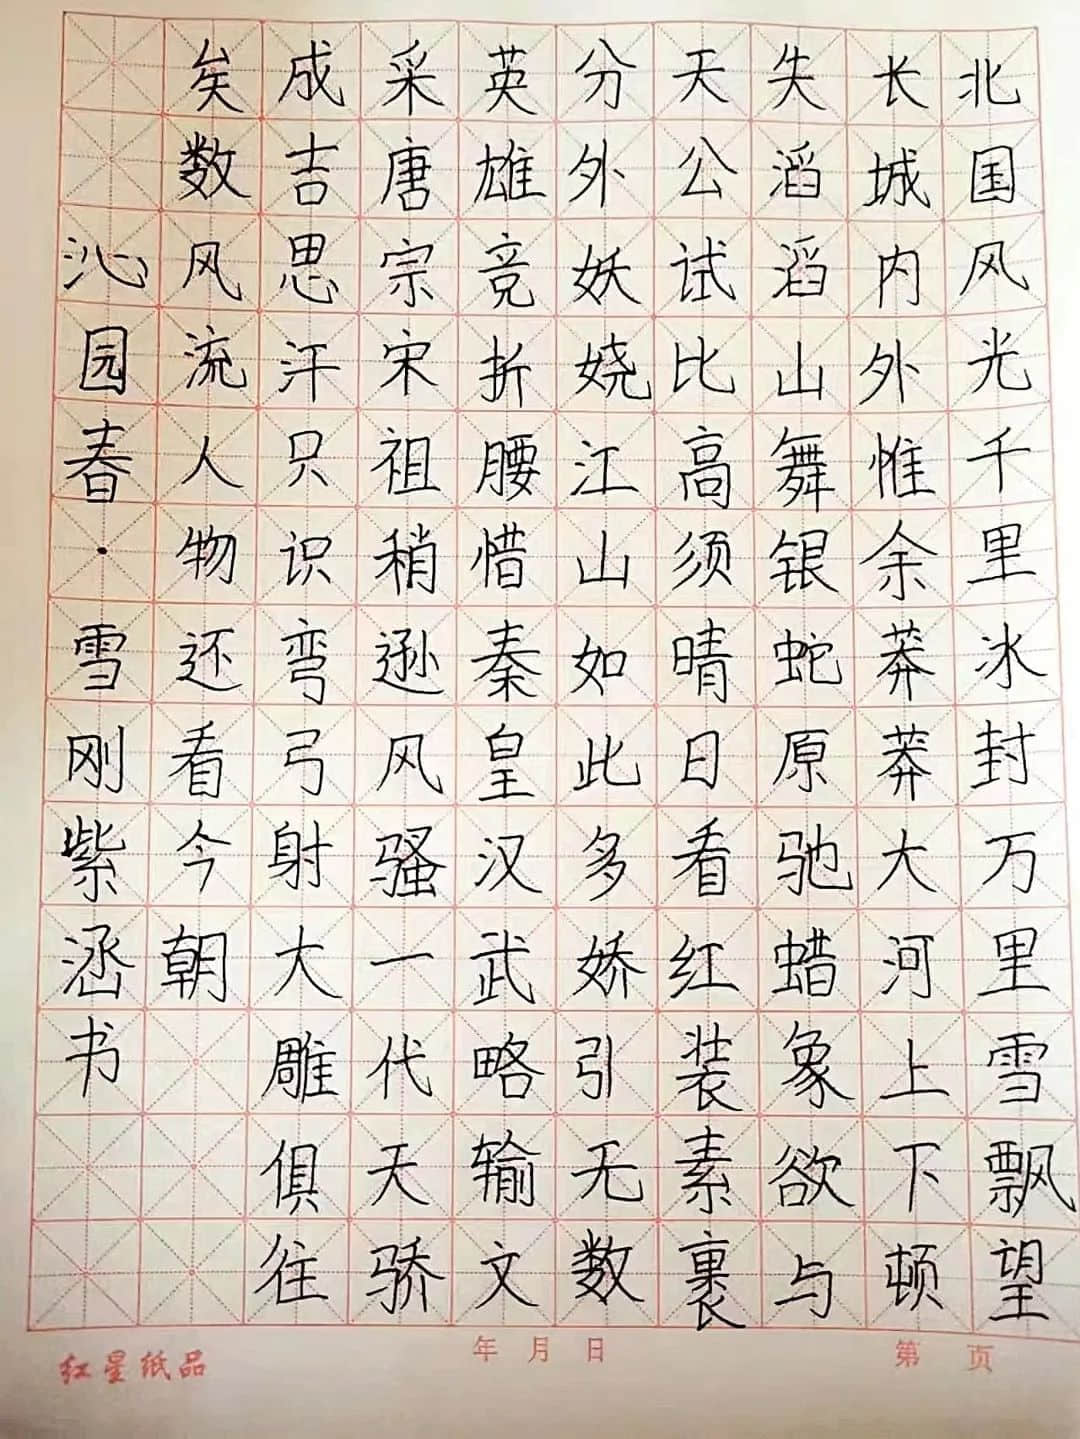 北国风光千里冰封万里雪飘望
长城内外惟余莽莽大河上下顿
失滔滔山舞银蛇原驰蜡象欲与
天公试比高须晴日看红装素裹
分外妖娆江山如此多娇引无数
英雄竞折腰惜秦皇汉武略输文
采唐宗宋祖稍逊风骚一代天骄
成吉思汗只识弯弓射大雕俱往
矣数风流人物还看今朝
沁园春·雪刚紫涵书
红星纸品
年 月 日
第 页